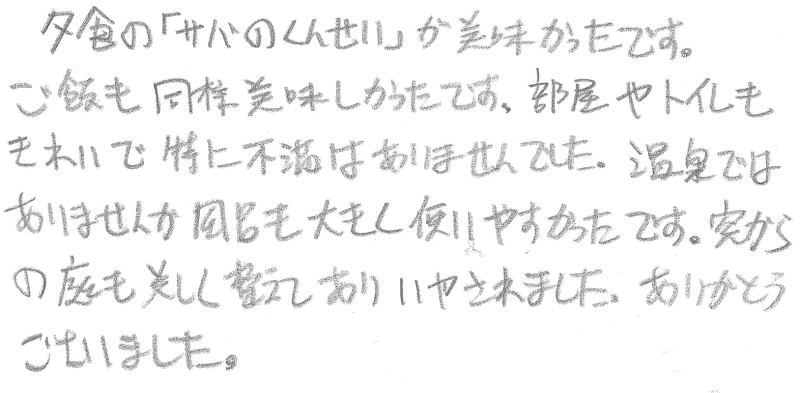 夕食の「サバのくんせい」が美味かったです。
ご飯も同様美味しかったです、部屋やトイレも
きれいで特に不満はありませんでした。温泉では
ありませんが風呂も大きく使いやすかったです。窓から
の庭も美しく整えてありいやされました。ありがとう
ございました。